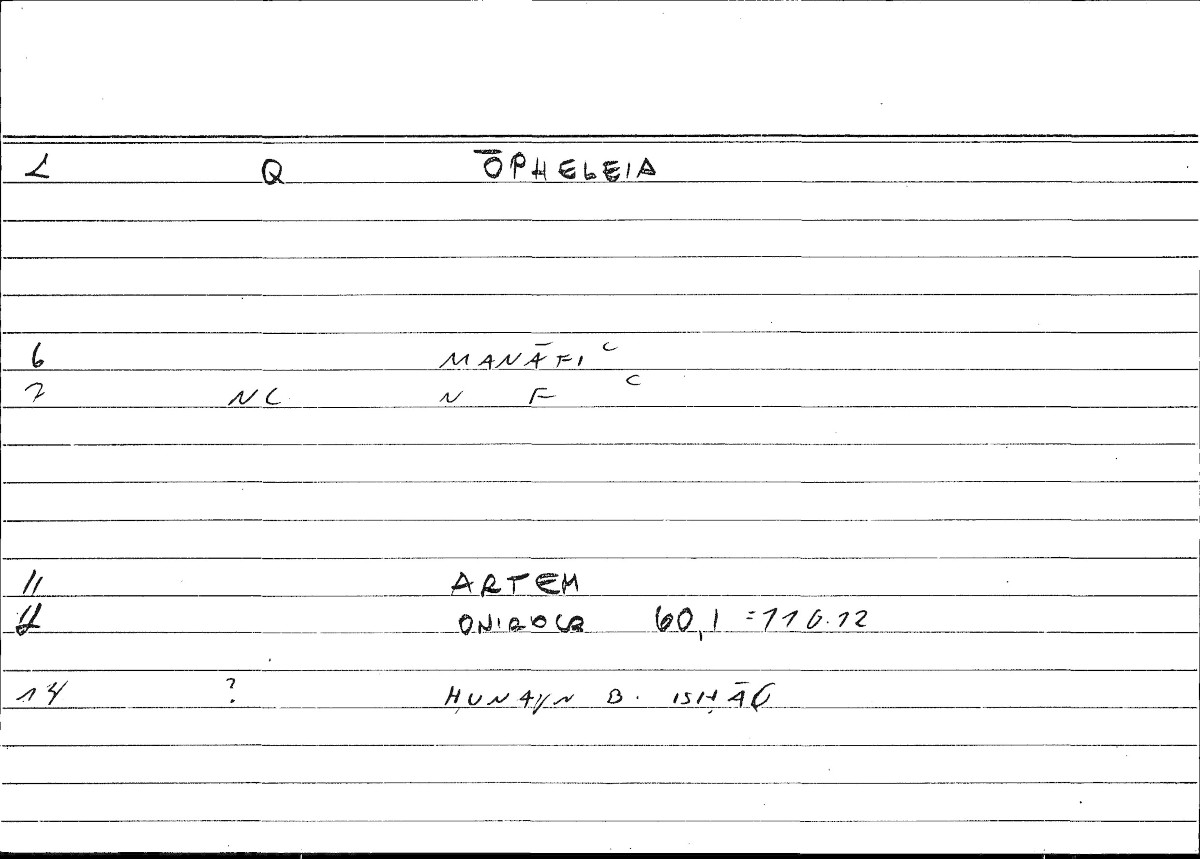 2 Q ŌPHELEIA
6 MANĀFIʿ
7 NC N F ʿ
11 ARTEM
12 ONIROCR 60,1 = 116.12
14 ? ḤUNAYN B. ISḤĀQ